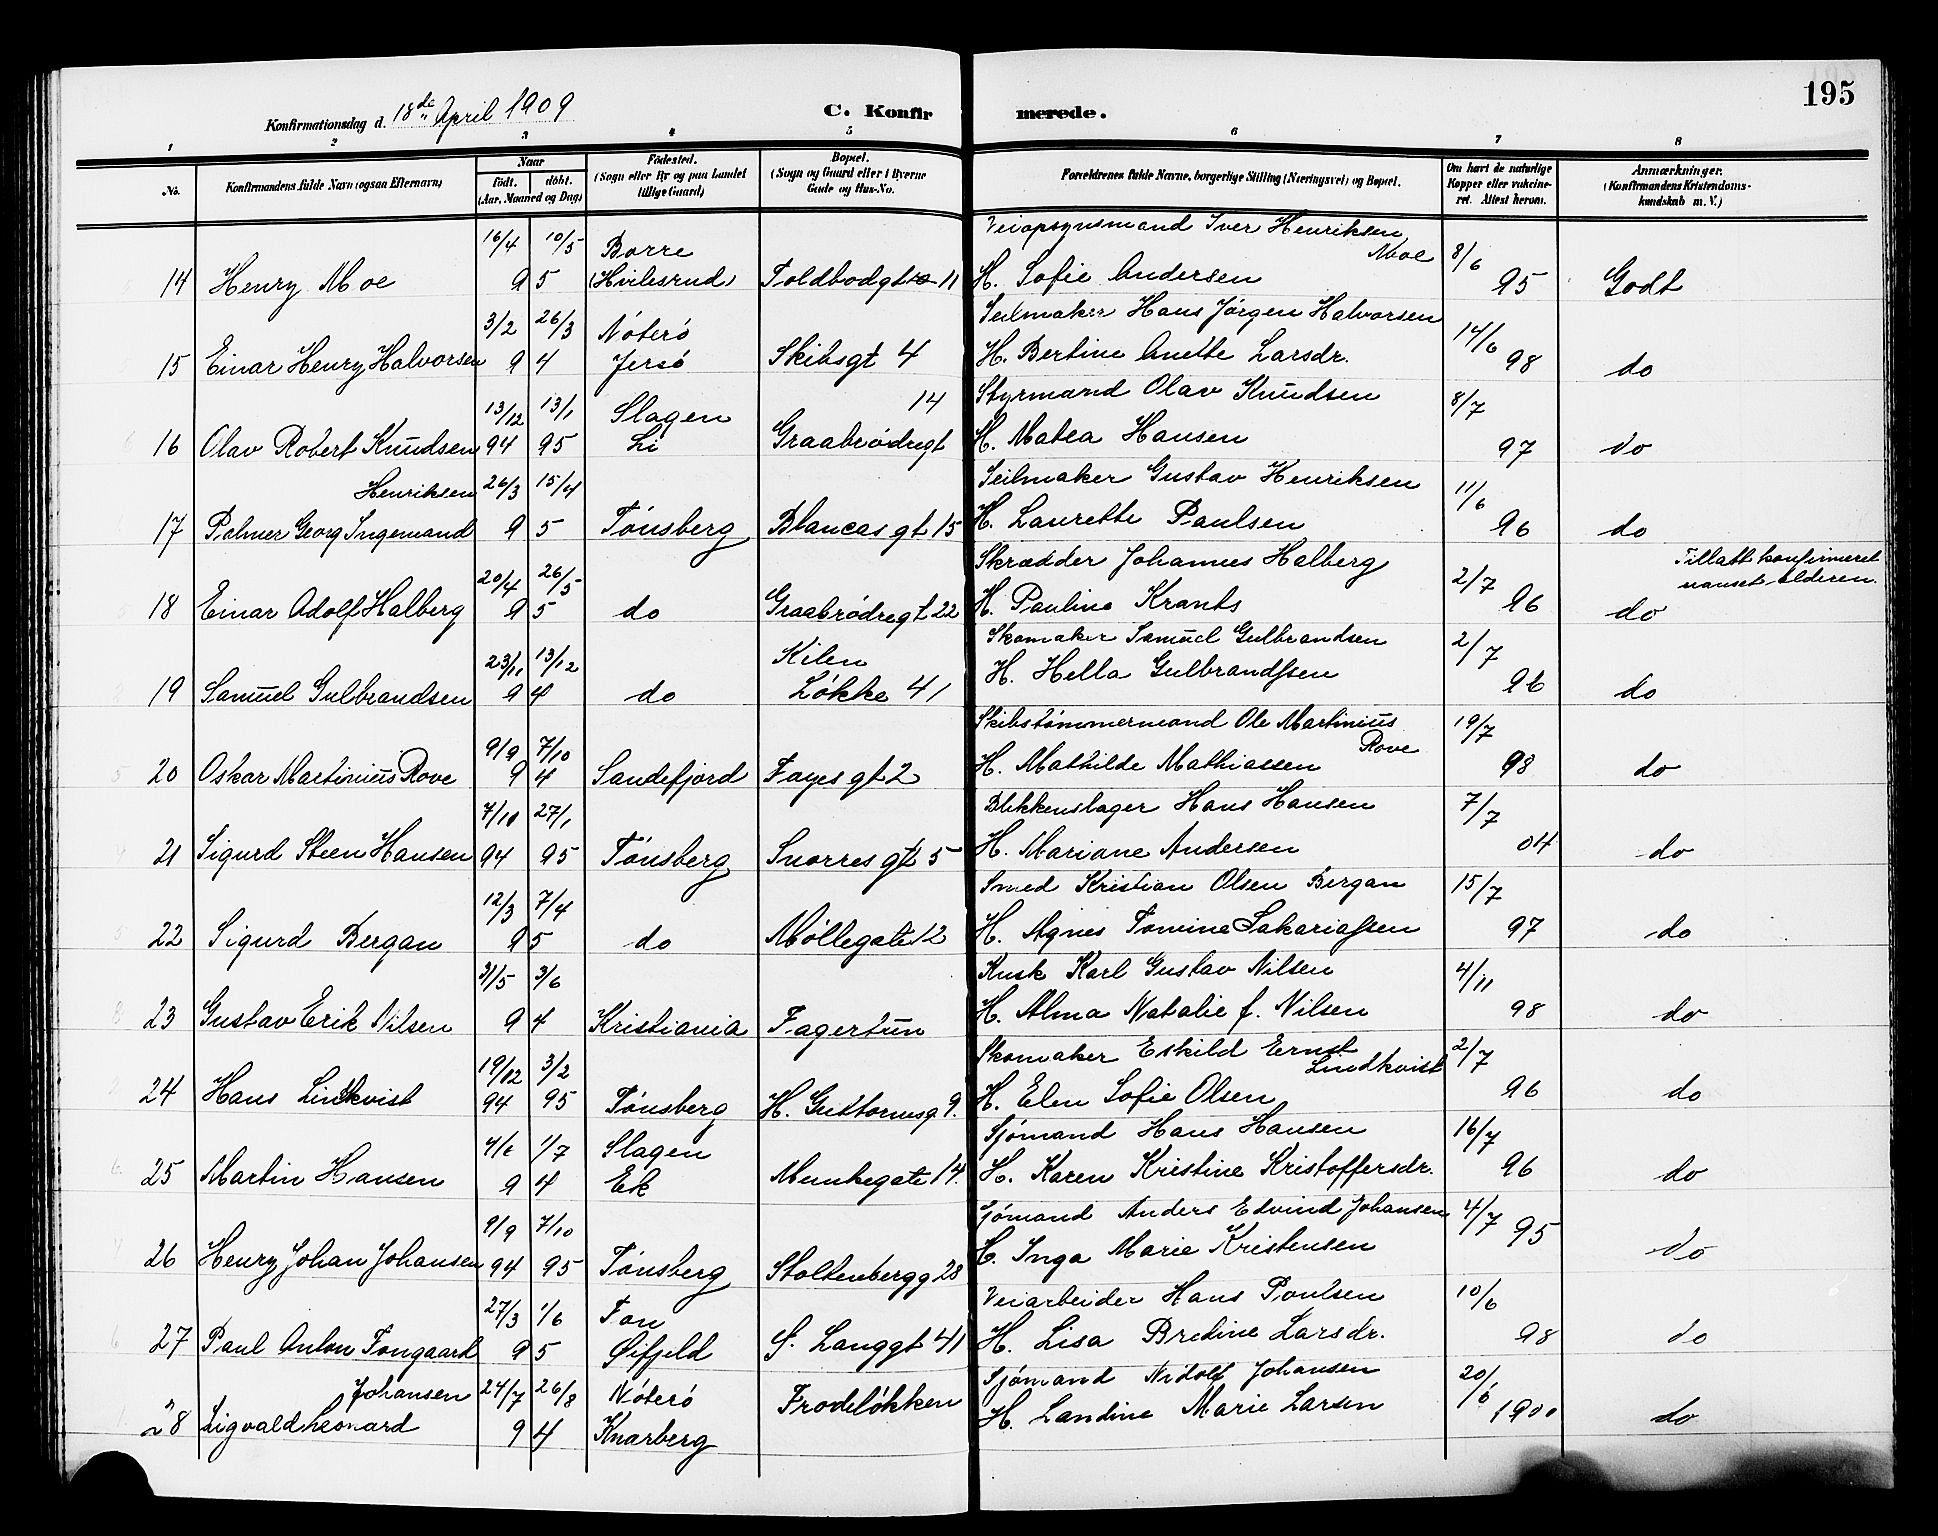 195
Konfirmationsdag d. 18de April 1909
C. Konfirmerede.
1 2 3 4 5 6 7 8
No.
Konfirmandens fulde Navn (ogsaa Efternavn)
Naar
födt. döbt.
(Aar, Maaned og Dag)
Födested.
(Sogn eller By og paa Landet tillige Gaard)
Bopæl.
(Sogn og Gaard eller i Byerne Gade og Hus-No.
Forældrenes fulde Navne, borgerlige Stilling (Næringsvei) og Bopæl.
Om havt de naturlige Kopper eller vakcineret. Attest herom.
Anmærkninger.
(Konfirmandens Kristendomskundskab m. V.)
16/4 10/5 Borre Veiopsynsmand Iver Henriksen Moe 8/6
14 Henry Moe 9 5 (Hvilesrud) Toldbodgt 11 H. Sofie Andersen 95 Godt
3/2 26/3 Nøterø Seilmaker Hans Jørgen Halvorsen 14/6
15 Einar Henry Halvorsen 9 4 Jersø Skibsgt 4 H. Bertine Anette Larsdr. 98 do
13/12 13/1 Slagen 14 Styrmand Olav Knudsen 8/7
16 Olav Robert Knudsen 94 95 Li Graabrødregt H. Matea Hansen 97 do
Henriksen 26/3 15/4 Seilmaker Gustav Henriksen 11/6
17 Palmer Georg Ingemand 9 5 Tønsberg Blancas gt 15 H. Laurette Paulsen 96 do
20/4 26/5 Skrædder Johannes Halberg 2/7 Tillatt konfirmeret uanset alderen.
18 Einar Adolf Halberg 9 5 do Graabrødregt 22 H. Pauline Krants 96 do
23/11 13/12 Kilen Skomaker Samuel Gulbrandsen 2/7
19 Samuel Gulbrandsen 9 4 do Løkke 41 H. Hella Gulbrandssen 96 do
9/9 7/10 Skibstømmermand Ole Martinius Rove 19/7
20 Oskar Martinius Rove 9 4 Sandefjord Fayes gt 2 H. Mathilde Mathiassen 98 do
7/10 27/1 Blikkenslager Hans Hansen 7/7
21 Sigurd Steen Hansen 94 95 Tønsberg Snorres gt 5 H. Mariane Andersen 04 do
12/3 7/4 Smed Kristian Olsen Bergan 15/7
22 Sigurd Bergan 9 5 do Møllegate 12 H. Agnes Tomine Sakariassen 97 do
31/5 3/6 Kusk Karl Gustav Nilsen 4/11
23 Gustav Erik Nilsen 9 4 Kristiania Fagertun H. Alma Natalie f. Nilsen 98 do
19/12 3/2 Skomaker Eskild Ernst Lindkvist 2/7
24 Hans Lindkvist 94 95 Tønsberg H. Guttormsg 9. H. Elen Sofie Olsen 96 do
4/6 1/7 Slagen Sjømand Hans Hansen 16/7
25 Martin Hansen 9 4 Ek Munkegate 14. H. Karen Kristine Kristoffersdr. 96 do
9/9 7/10 Sjømand Anders Edvind Johansen 4/7
26 Henry Johan Johansen 94 95 Tønsberg Stoltenbergg 28 H. Inga Marie Kristensen 95 do
27/3 1/6 Fon Veiarbeider Hans Poulsen 10/6
27 Paul Anton Fongaard 9 5 Øifjeld S. Langgt 41 H. Lisa Bredine Larsdr. 98 do
Johansen 24/7 26/8 Nøterø Sjømand Nidolf Johansen 20/6
28 Sigvald Leonard 9 4 Knarberg Frodeløkken H. Landine Marie Larsen 1900 do